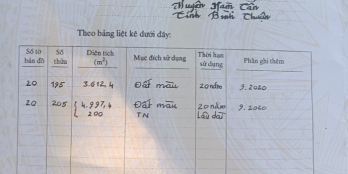 Huyện Hàm Tân
Tỉnh Bình Thuận
Theo bảng liệt kê dưới đây:
Số tờ bản đồ | Số thửa | Diện tích (m²) | Mục đích sử dụng | Thời hạn sử dụng | Phần ghi thêm
20 | 195 | 3.612,4 | Đất màu | 20 năm | 9.2020
20 | 205 | 4.997,4 | Đất màu | 20 năm | 9.2020
200 | TN | Lâu dài